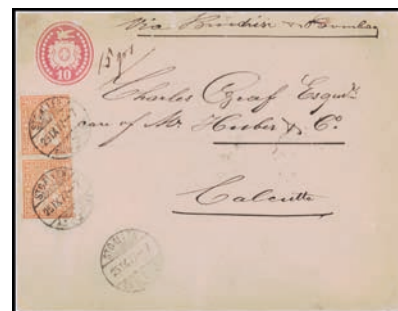 Via Brindisi & Bombay
10
15 grs
Charles Graf Esqre.
care of Mr Huber & Co.
Calcutta